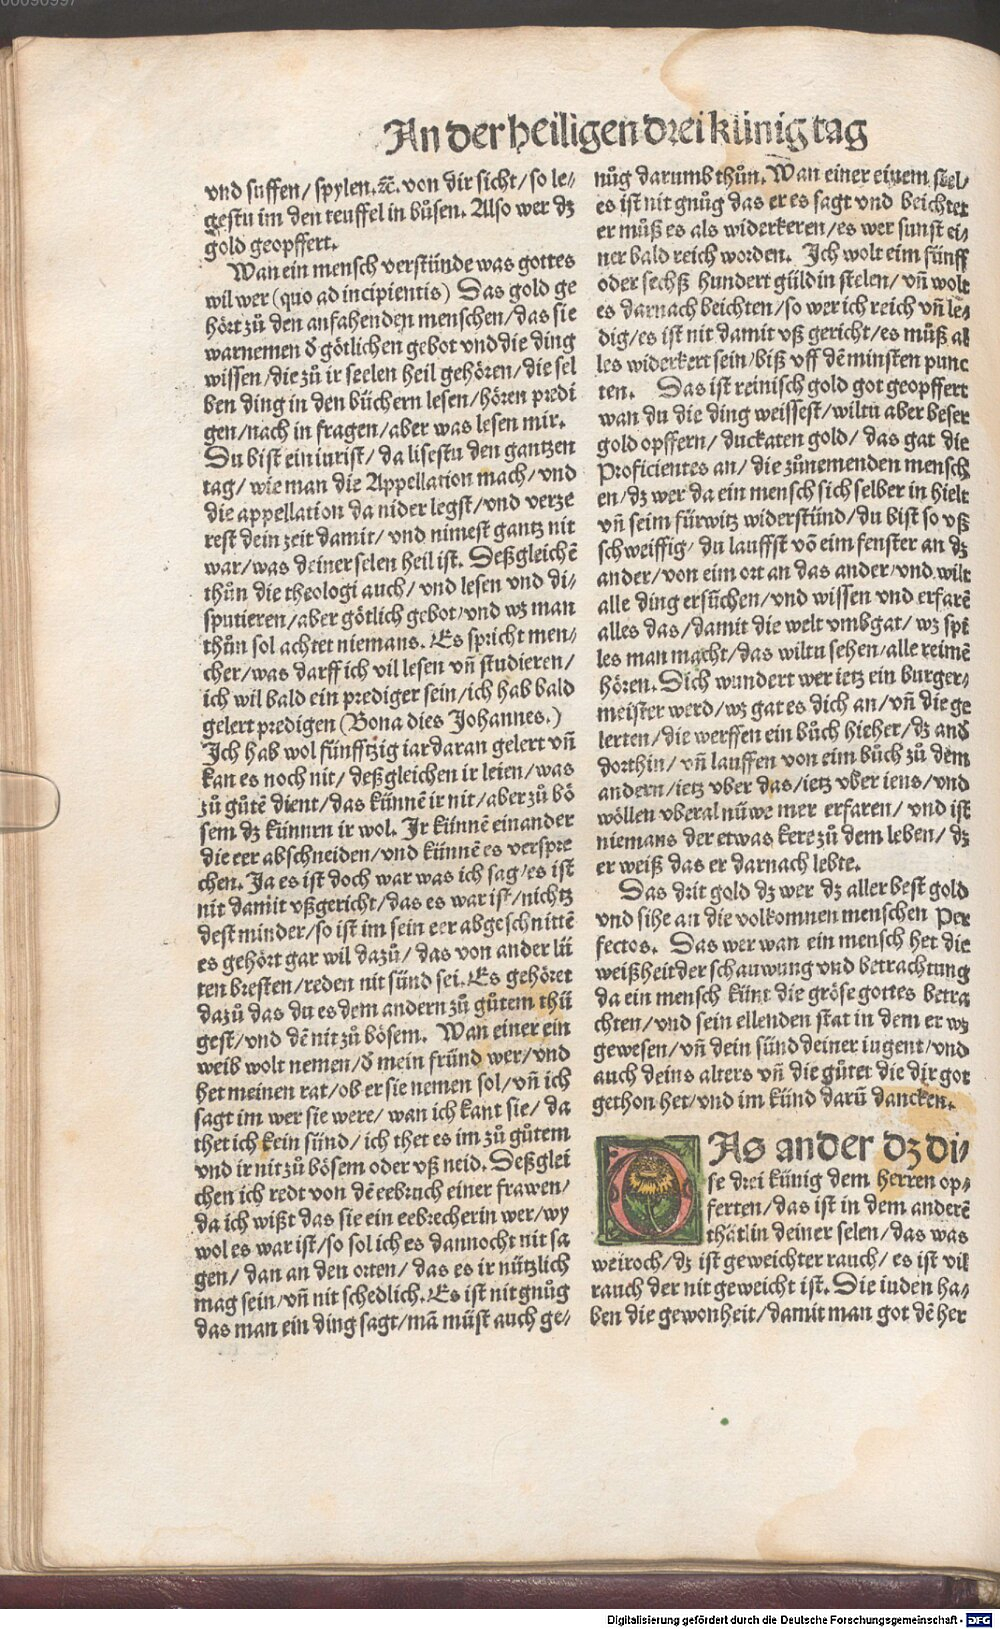 An der heiligen drei künig tag
vnd suffen/ spylen. ꝛc̃. von dir sicht/ so le⸗
gestu im den teuffel in bůsen. Also wer dz
gold geopffert.
Wan ein mensch verstünde was gottes
wil wer (quo ad incipientis) Das gold ge
hört zů den anfahenden menschen/das sie
warnemen đ götlichen gebot vnd die ding
wissen/die zů ir seelen heil gehören/die sel
ben ding in den büchern lesen/hören predi
gen/nach in fragen/aber was lesen mir.
Du bist ein iurist/ da lisestu den gantzen
tag/ wie man die Appellation mach/vnd
die appellation da nider legst/vnd verze
rest dein zeit damit/ vnd nimest gantz nit
war/was deiner selen heil ist. Deßgleichẽ
thůn die theologi auch/ vnd lesen vnd di⸗
sputieren/aber götlich gebot/vnd wz man
thůn sol achtet niemans. Es spricht men⸗
cher/was darff ich vil lesen vñ studieren/
ich wil bald ein prediger sein/ich hab bald
gelert predigen (Bona dies Johannes.)
Ich hab wol fünfftzig iar daran gelert vñ
kan es noch nit/ deßgleichen ir leien/was
zů gůtẽ dient/das künnẽ ir nit/aber zů bö
sem dz künnrn ir wol. Ir künnẽ einander
die eer abschneiden/vnd künnẽ es verspre
chen. Ja es ist doch war was ich sag/es ist
nit damit vßgericht/das es war ist/nichtz
dest minder/so ist im sein eer abgeschnittẽ
es gehört gar wil dazů/ das von ander lü
ten bresten/reden nit sünd sei. Es gehöret
dazů das du es dem andern zů gůtem thü
gest/vnd dẽ nit zů bösem. Wan einer ein
weib wolt nemen/đ mein fründ wer/vnd
het meinen rat/ob er sie nemen sol/vñ ich
sagt im wer sie were/ wan ich kant sie/ da
thet ich kein sünd/ ich thet es im zů gůtem
vnd ir nit zů bösem oder vß neid. Deßglei
chen ich redt von dẽ eebruch einer frawen/
da ich wißt das sie ein eebrecherin wer/wy
wol es war ist/so sol ich es dannocht nit sa
gen/ dan an den orten/ das es ir nützlich
mag sein/vñ nit schedlich. Es ist nit gnůg
das man ein ding sagt/mã můst auch ge⸗
nůg darumb thůn. Wan einer eivem stel⸗
es ist nit gnůg das er es sagt vnd beichtet
er můß es als widerkeren/es wer sunst ei⸗
ner bald reich worden. Ich wolt eim fünff
oder sechß hundert güldin stelen/ vñ wolt
es darnach beichten/so wer ich reich vñ le⸗
dig/es ist nit damit vß gericht/es můß al
les widerkert sein/biß vff dẽ minsten punc
ten. Das ist reinisch gold got geopffert
wan du die ding weissest/wiltu aber beser
gold opffern/ duckaten gold/ das gat die
Proficientes an/ die zůnemenden mensch
en/dz wer da ein mensch sich selber in hielt
vñ seim fürwitz widerstünd/du bist so vß
schweiffig/ du lauffst võ eim fenster an dz
ander/von eim ort an das ander/vnd wilt
alle ding ersůchen/vnd wissen vnd erfarẽ
alles das/damit die welt vmbgat/ wz spi
les man macht/das wiltu sehen/alle reimẽ
hören. Dich wundert wer ietz ein burger⸗
meister werd/wz gat es dich an/vñ die ge
lerten/die werffen ein bůch hieher/dz and
dorthin/ vñ lauffen von eim bůch zů dem
andern/ietz vber das/ietz vber iens/vnd
wöllen vberal nüwe mer erfaren/ vnd ist
niemans der etwas kere zů dem leben/ dz
er weiß das er darnach lebte.
Das drit gold dz wer dz aller best gold
vnd sihe an die volkomnen menschen Per
fectos. Das wer wan ein mensch het die
weißheit der schauwung vnd betrachtung
da ein mensch künt die gröse gottes betra
chten/vnd sein ellenden stat in dem er wz
gewesen/vñ dein sünd deiner iugent/vnd
auch deins alters vñ die gůtet die dir got
gethon het/vnd im künd darũ dancken.
DAs ander dz di⸗
se drei künig dem herren op⸗
ferten/das ist in dem anderẽ
thätlin deiner selen/das was
weiroch/dz ist geweichter rauch/ es ist vil
rauch der nit geweicht ist. Die iuden ha⸗
ben die gewonheit/damit man got dẽ her
Digitalisierung gefördert durch die Deutsche Forschungsgemeinschaft - DFG